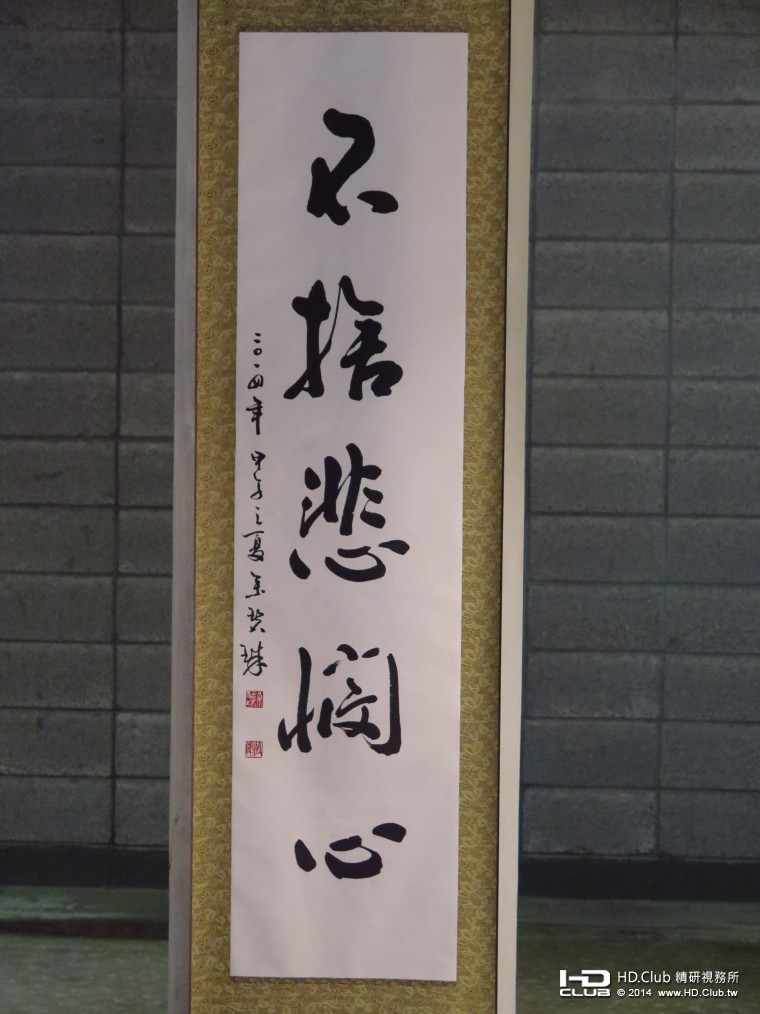 不捨悲憫心
二〇一四年 甲午之夏
HD CLUB
HD.Club 精研視務所
© 2014 www.HD.Club.tw